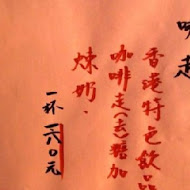 走
香港特色飲品
咖啡走(去)糖加
煉奶.
一杯 〇元